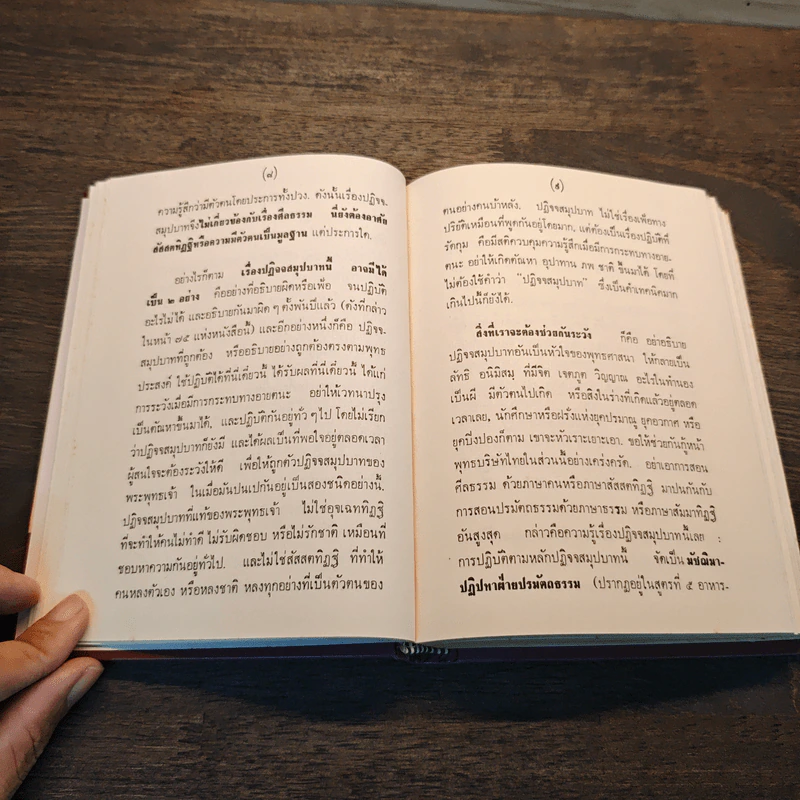 (๘)
ความรู้สึกว่ามีตัวตนโดยประการทั้งปวง. ดังนั้นเรื่องปฏิจจ-
สมุปบาทจึงไม่เกี่ยวข้องกับเรื่องศีลธรรม ที่ยังต้องอาศัย
สัสสตทิฏฐิหรือความมีตัวตนเป็นมูลฐาน แต่ประการใด.
อย่างไรก็ตาม เรื่องปฏิจจสมุปบาทนี้ อาจมีได้
เป็น ๒ อย่าง คืออย่างที่อธิบายผิดหรือเพ้อ จนปฏิบัติ
อะไรไม่ได้ และอธิบายกันมาผิด ๆ ตั้งพันปีแล้ว (ดังที่กล่าว
ในหน้า ๗๕ แห่งหนังสือนี้) และอีกอย่างหนึ่งก็คือ ปฏิจจ-
สมุปบาทที่ถูกต้อง หรืออธิบายอย่างถูกต้องตรงตามพุทธ
ประสงค์ ใช้ปฏิบัติได้ที่นี่เดี๋ยวนี้ ได้รับผลที่นี่เดี๋ยวนี้ ได้แก่
การระวังเมื่อมีการกระทบทางอายตนะ อย่าให้เวทนาปรุง
เป็นตัณหาขึ้นมาได้, และปฏิบัติกันอยู่ทั่ว ๆ ไป โดยไม่เรียก
ว่าปฏิจจสมุปบาทก็ยังมี และได้ผลเป็นที่พอใจอยู่ตลอดเวลา
ผู้สนใจจะต้องระวังให้ดี เพื่อให้ถูกตัวปฏิจจสมุปบาทของ
พระพุทธเจ้า ในเมื่อมันปนเปกันอยู่เป็นสองชนิดอย่างนี้.
ปฏิจจสมุปบาทที่แท้ของพระพุทธเจ้า ไม่ใช่อุจเฉททิฏฐิ
ที่จะทำให้คนไม่ทำดี ไม่รับผิดชอบ หรือไม่รักชาติ เหมือนที่
ชอบหาความกันอยู่ทั่วไป. และไม่ใช่สัสสตทิฏฐิ ที่ทำให้
คนหลงตัวเอง หรือหลงชาติ หลงทุกอย่างที่เป็นตัวตนของ
(๙)
ตนอย่างคนบ้าหลัง. ปฏิจจสมุปบาท ไม่ใช่เรื่องเพ้อทาง
ปริยัติเหมือนที่พูดกันอยู่โดยมาก, แต่ต้องเป็นเรื่องปฏิบัติที่
รัดกุม คือมีสติควบคุมความรู้สึกเมื่อมีการกระทบทางอาย-
ตนะ อย่าให้เกิดตัณหา อุปาทาน ภพ ชาติ ขึ้นมาได้ โดยที่
ไม่ต้องใช้คำว่า "ปฏิจจสมุปบาท" ซึ่งเป็นคำเทคนิคมาก
เกินไปนี้ก็ยังได้.
สิ่งที่เราจะต้องช่วยกันระวัง ก็คือ อย่าอธิบาย
ปฏิจจสมุปบาทอันเป็นหัวใจของพุทธศาสนา ให้กลายเป็น
ลัทธิ อนิมิสมุ ที่มีจิต เจตภูต วิญญาณ อะไรในทำนอง
เป็นผี มีตัวตนไปเกิด หรือสิงในร่างที่เกิดแล้วอยู่ตลอด
เวลาเลย, นักศึกษาหรือฝรั่งแห่งยุคปรมาณู ยุคอวกาศ หรือ
ยุคบิ๋งปองก็ตาม เขาจะหัวเราะเยาะเอา. ขอให้ช่วยกันกู้หน้า
พุทธบริษัทไทยในส่วนนี้อย่างเคร่งครัด. อย่าเอาการสอน
ศีลธรรม ด้วยภาษาคนหรือภาษาสัสสตทิฏฐิ มาปนกันกับ
การสอนปรมัตถธรรมด้วยภาษาธรรม หรือภาษาสัมมาทิฏฐิ
อันสูงสุด กล่าวคือความรู้เรื่องปฏิจจสมุปบาทนี้เลย :
การปฏิบัติตามหลักปฏิจจสมุปบาทนี้ จัดเป็น มัชฌิมา-
ปฏิปทาฝ่ายปรมัตถธรรม (ปรากฏอยู่ในสูตรที่ ๕ อาหาร-